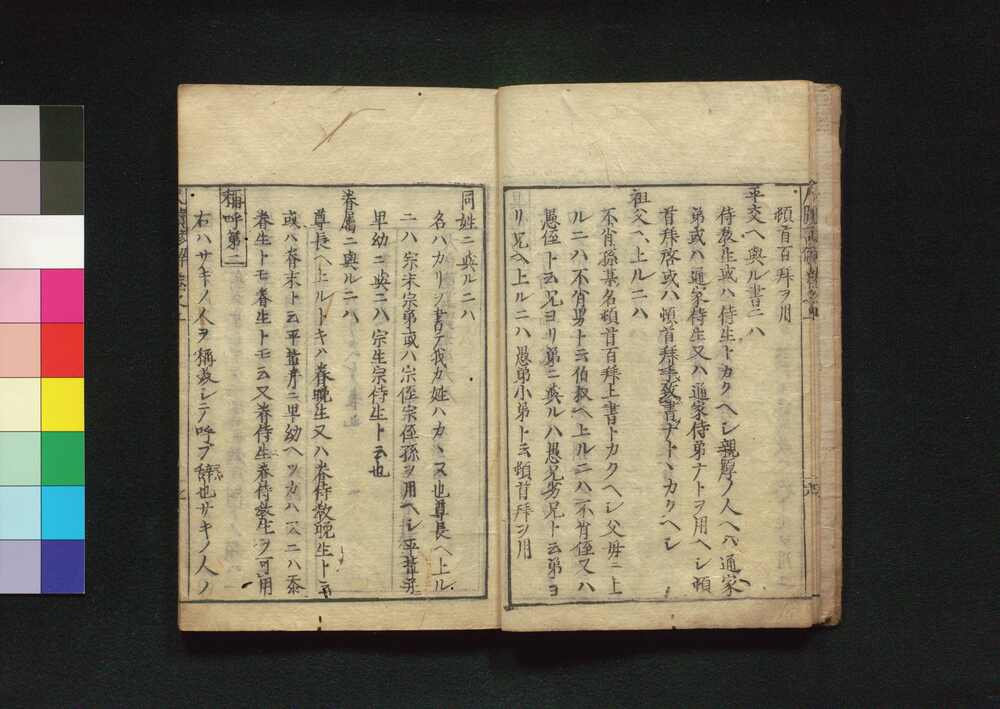 頓首百拜ヲ用
平交ヘ與ル書ニハ
侍教生或ハ侍生トカクヘシ親厚ノ人ヘハ通家
弟或ハ通家侍生又ハ通家侍弟ナトヲ用ヘシ頓
首拜啓或ハ頓首拜手致書ナト丶カクヘシ
祖父ヘ上ルニハ
不肖孫某名頓首百拜上書トカクヘシ父毋ニ上
ルニハ不肖男ト云伯叔ヘ上ルニハ不肖侄又ハ
愚侄ト云兄ヨリ弟ニ與ルハ愚兄劣兄ト云弟ヨ
リ兄ヘ上ルニハ愚弟小弟ト云頓首拜ヲ用
同姓ニ與ルニハ
名ハカリヲ書テ我カ姓ハカ丶ヌ也尊長ヘ上ル
ニハ宗末宗弟或ハ宗侄宗侄孫ヲ用ヘシ平輩并
卑幼ニ與ニハ宗生宗侍生ト云也
眷属ニ與ルニハ
尊長ヘ上ルトキハ眷晩生又ハ眷侍教晩生ト云
或ハ眷末ト云平輩并ニ卑幼ヘツカハスニハ忝
眷生トモ眷生トモ云又眷侍生眷侍教生ヲ可用
稱呼第二
右ハサキノ人ヲ稱敎シテ呼フ辞也サキノ人ノ